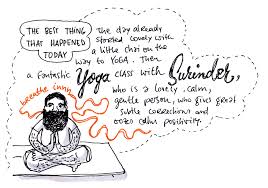 THE BEST THING
THAT HAPPENED
TODAY
The day already
started lovely with
a little chai on the
way to YOGA. Then
a fantastic Yoga class with Surinder,
who is a lovely, calm,
gentle person, who gives great
subtle corrections and
oozes calm positivity.
breathe